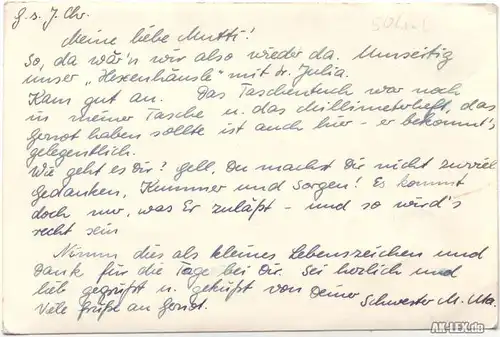 G. s. J. Chr.
Meine liebe Mutti!
So, da wär'n wir also wieder da. Umseitig
unser "Hexenhäusle" mit Sr. Julia.
Kam gut an. Das Taschentuch war noch
in meiner Tasche u. das Millimeterheft, das
Gernot haben sollte ist auch hier - er bekommt's
gelegentlich.
Wie geht es Dir? Gell, Du machst Dir nicht zuviel
Gedanken, Kummer und Sorgen! Es kommt
doch nur, was Er zuläßt - und so wird's
recht sein
Nimm dies als kleines Lebenszeichen und
Danke für die Tage bei Dir. Sei herzlich und
lieb gegrüßt u. geküßt von Deiner
Schwester M. Uta.
Viele Grüße an Gernot.
AK-LEX.de